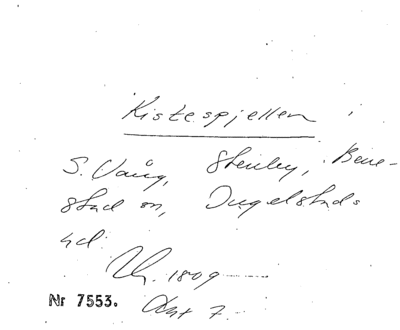 Kistespjellen
S. Vång, Stenby, Bene-
stad sn, Ingelstads
hd.
1809
Nr 7553.
7